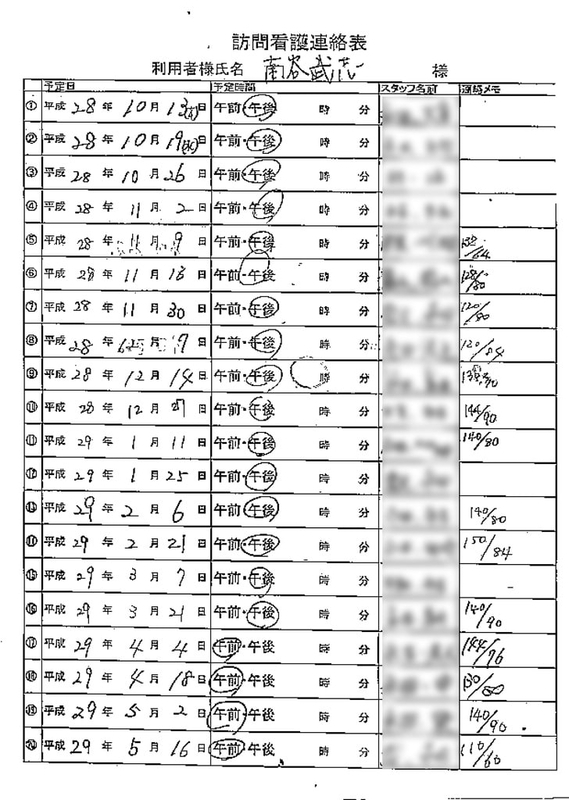 訪問看護連絡表
利用者様氏名 南谷武志 様
予定日 予定時間 スタッフ名前 連絡メモ
① 平成 28 年 10 月 13(木) 日 午前・午後 時 分
② 平成 28 年 10 月 19(水) 日 午前・午後 時 分
③ 平成 28 年 10 月 26 日 午前・午後 時 分
④ 平成 28 年 11 月 2 日 午前・午後 時 分
⑤ 平成 28 年 11 月 9 日 午前・午後 時 分
⑥ 平成 28 年 11 月 日 午前・午後 時 分 128/80
⑦ 平成 28 年 11 月 30 日 午前・午後 時 分 120/80
⑧ 平成 28 年 月 日 午前・午後 時 分 120/84
⑨ 平成 28 年 12 月 14 日 午前・午後 時 分
⑩ 平成 28 年 12 月 日 午前・午後 時 分 144/90
⑪ 平成 29 年 1 月 11 日 午前・午後 時 分 140/80
⑫ 平成 29 年 1 月 25 日 午前・午後 時 分
⑬ 平成 29 年 2 月 6 日 午前・午後 時 分 140/80
⑭ 平成 29 年 2 月 21 日 午前・午後 時 分 150/84
⑮ 平成 29 年 3 月 7 日 午前・午後 時 分
⑯ 平成 29 年 3 月 21 日 午前・午後 時 分 140/90
⑰ 平成 29 年 4 月 4 日 午前・午後 時 分 144/96
⑱ 平成 29 年 4 月 18 日 午前・午後 時 分 130/80
⑲ 平成 29 年 5 月 2 日 午前・午後 時 分 140/90
⑳ 平成 29 年 5 月 16 日 午前・午後 時 分 110/60